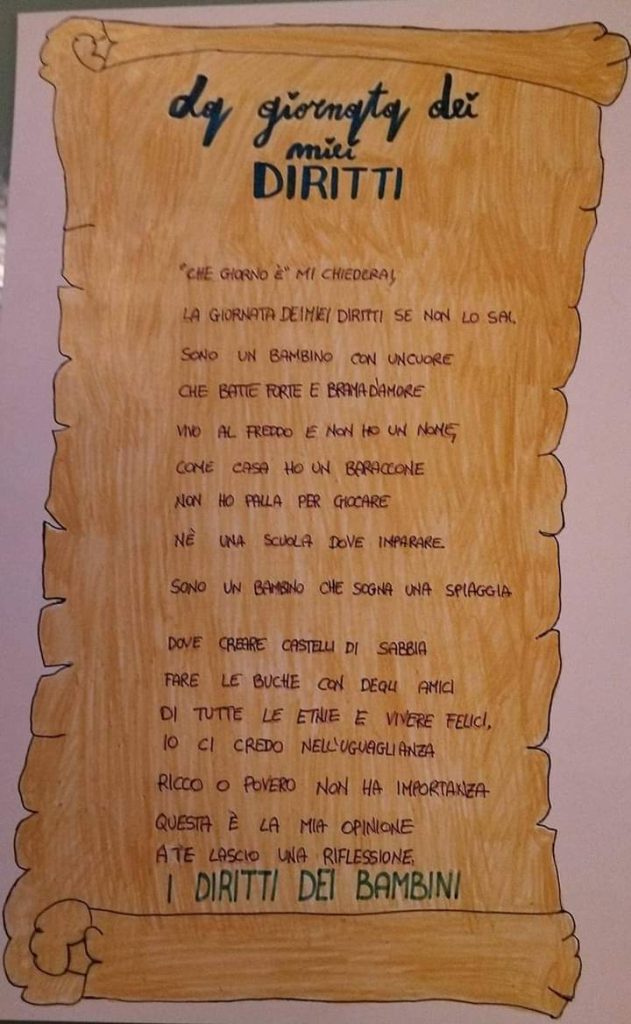 La giornata dei
miei
DIRITTI
"CHE GIORNO È" MI CHIEDERAI,
LA GIORNATA DEI MIEI DIRITTI SE NON LO SAI.
SONO UN BAMBINO CON UN CUORE
CHE BATTE FORTE E BRAMA D'AMORE
VIVO AL FREDDO E NON HO UN NOME,
COME CASA HO UN BARACCONE
NON HO PALLA PER GIOCARE
NÈ UNA SCUOLA DOVE IMPARARE.
SONO UN BAMBINO CHE SOGNA UNA SPIAGGIA
DOVE CREARE CASTELLI DI SABBIA
FARE LE BUCHE CON DEGLI AMICI
DI TUTTE LE ETNIE E VIVERE FELICI,
IO CI CREDO NELL'UGUAGLIANZA
RICCO O POVERO NON HA IMPORTANZA
QUESTA È LA MIA OPINIONE
A TE LASCIO UNA RIFLESSIONE.
I DIRITTI DEI BAMBINI